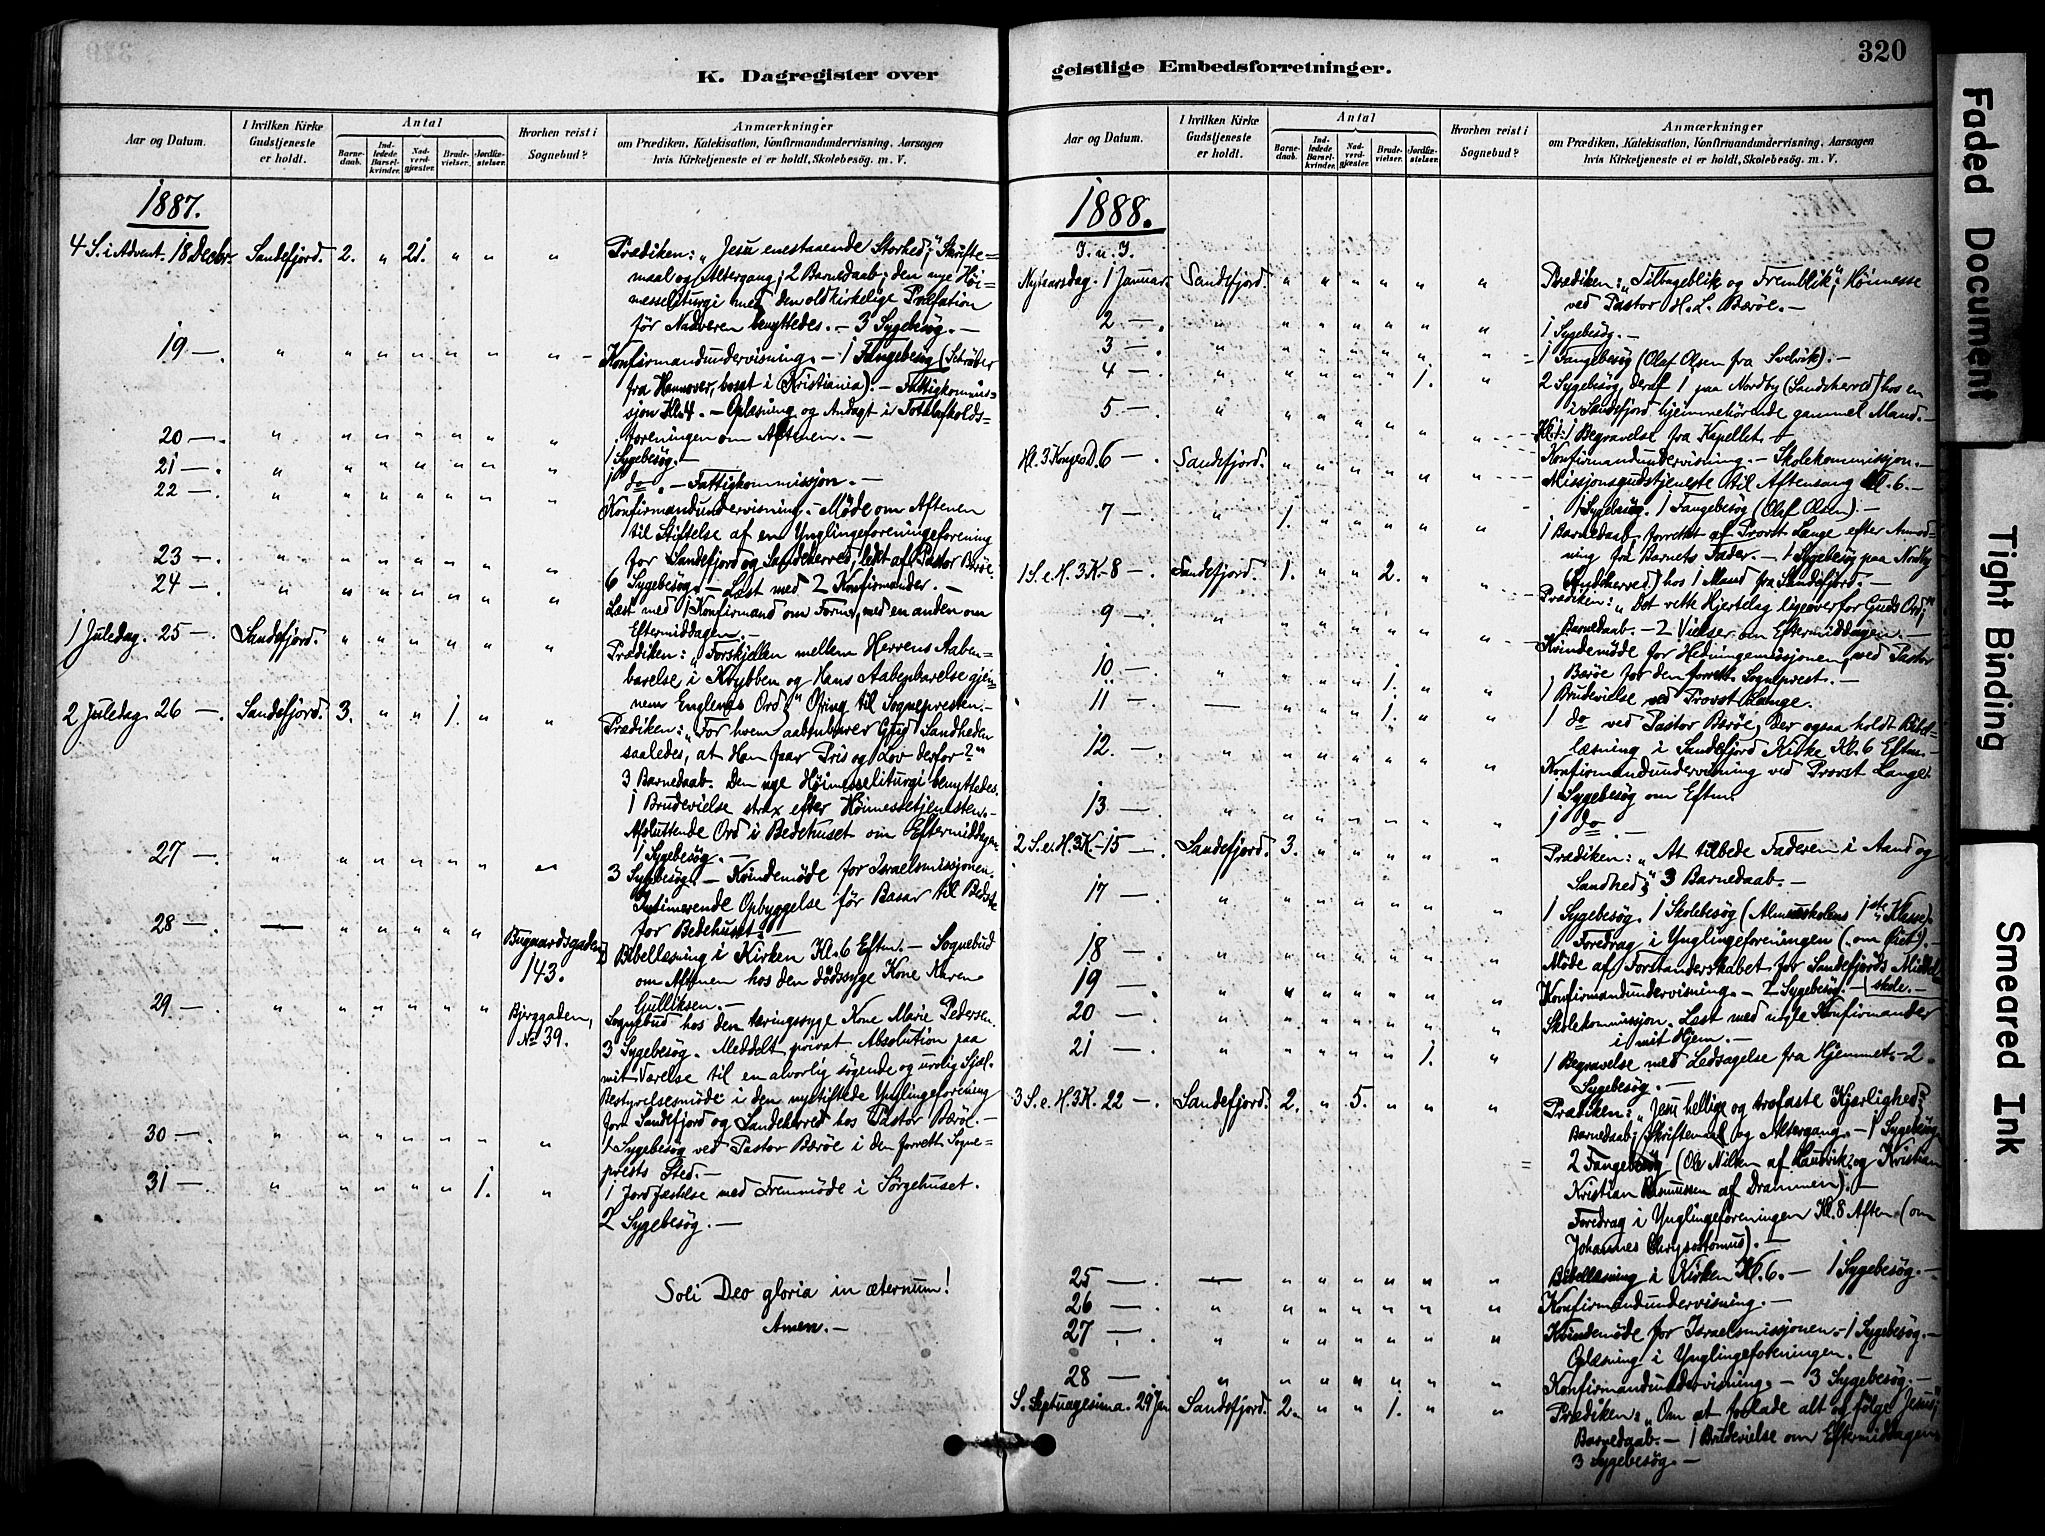 320
K. Dagregister over
Aar og Datum.
I hvilken Kirke Gudstjeneste er holdt.
Antal
Barnedaab.
Indledede Barselkvinder.
Nadverdgjæster.
Brudevielser.
Jordfæstelser.
Hvorhen reist i Sognebud?
Anmærkninger
om Prædiken, Katekisation, Konfirmandundervisning, Aarsagen
hvis Kirketjeneste ei er holdt, Skolebesøg. m. V.
1887.
4 S. i Advent. 18 Decbr. Sandefjord. 2. " 21. " " " Prædiken: „Jesu enestaaende Storhed;" Skrifte=
maal og Altergang; 2 Barnedaab; den nye Høi=
messeliturgi med den oldkirkelige Præfation
før Nadveren benyttedes. - 3 Sygebesøg. -
19 -. " " " " " " " Konfirmandundervisning. - 1 Fangebesøg (Schrøter
fra Hannover, bosat i Kristiania). - Fattigkommis=
sjon Kl. 4. - Oplæsning og Andagt i Totalafholds=
foreningen om Aftenen. -
20 -. " " " " " " " 1 Sygebesøg. -
21 -. " " " " " " " 1 do. - Fattigkommissjon. -
22 -. " " " " " " " Konfirmandundervisning. - Møde om Aftenen
til Stiftelse af en Ynglingeforeningeforening
for Sandefjord og Sandeherred, ledet af Pastor Bærøe.
23 -. " " " " " " " 6 Sygebesøg. - Læst med 2 Konfirmander. -
24 -. " " " " " " " Læst med 1 Konfirmand om Form., med en anden om
Eftermiddagen. -
1 Juledag. 25 -. Sandefjord. " " " " " " Prædiken: „Forskjellen mellem Herrens Aaben=
barelse i Krybben og Hans Aabenbarelse gjen=
nem Englens Ord;" Ofring til Sognepresten. -
2 Juledag. 26 -. Sandefjord. 3. " " 1. " " Prædiken: „For hvem aabenbarer Gud Sandheden
saaledes, at Han faar Pris og Lov derfor?"
3 Barnedaab. Den nye Høimesseliturgi benyttedes.
1 Brudevielse strax efter Høimessetjenesten. -
Afsluttende Ord i Bedehuset om Eftermiddagen.
1 Sygebesøg. -
27 -. " " " " " " " 3 Sygebesøg. - Kvindemøde for Israelsmissjonen.
Intimerende Opbyggelse før Basar til Bedste
for Bedehuset. -
28 -. — " " " " " Bugaardsgaden 143. Bibellæsning i Kirken Kl. 6 Eftm. - Sognebud
om Aftenen hos den dødssyge Kone Karen
Gulliksen. -
29 -. " " " " " " Bjerggaden, No 39. Sognebud hos den tæringssyge Kone Marie Pedersen.
3 Sygebesøg. Meddelt privat Absolution paa
mit Værelse til en alvorlig søgende og urolig Sjæl.
Bestyrelsesmøde i den nystiftede Ynglingeforening
for Sandefjord og Sandeherred hos Pastor Bærøe. -
30 -. " " " " " " " Sygebesøg ved Pastor Bærøe i den forrett. Sogne=
prests Sted. -
31 -. " " " " " 1. " 1 Jordfæstelse med Fremmøde i Sørgehuset.
2 Sygebesøg. -
Soli Deo gloria in æternum!
Amen. -
geistlige Embedsforretninger.
Aar og Datum.
I hvilken Kirke Gudstjeneste er holdt.
Antal
Barnedaab.
Indledede Barselkvinder.
Nadverdgjæster.
Brudevielser.
Jordfæstelser.
Hvorhen reist i Sognebud?
Anmærkninger
om Prædiken, Katekisation, Konfirmandundervisning, Aarsagen
hvis Kirketjeneste ei er holdt, Skolebesøg. m. V.
1888.
J. n. J.
Nytaarsdag. 1 Januar. Sandefjord. " " " " " " Prædiken: „Tilbageblik og Fremblik"; Høimesse
ved Pastor H. L. Bærøe. -
2 -. " " " " " " " 1 Sygebesøg. -
3 -. " " " " " " " 1 Fangebesøg (Olaf Olsen fra Svelvik). -
4 -. " " " " " 1. " 2 Sygebesøg, deraf 1 paa Nordby (Sandeherred) hos en
i Sandefjord hjemmehørende gammel Mand. -
5 -. " " " " " " " 1 Begravelse fra Kapellet. -
Konfirmandundervisning. - Skolekommissjon. -
Hl. 3 Konges D. 6 -. Sandefjord. " " " " " " Missjonsgudstjeneste til Aftensang Kl. 6. -
1 Sygebesøg. 1 Fangebesøg (Olaf Olsen). -
7 -. " 1. " " " " " 1 Barnedaab forrettet af Provst Lange efter Anmod=
ning fra Barnets Fader. - 1 Sygebesøg paa Nordby
(Sandeherred) hos 1 Mand fra Sandefjord. -
1 S. e. H. 3 K. 8 -. Sandefjord. 1. " " 2. " " Prædiken: „Det rette Hjertelag ligeoverfor Guds Ord;"
Barnedaab. - 2 Vielser om Eftermiddagen. -
9 -. " " " " " " " Kvindemøde for Hedningemissjonen ved Pastor
Bærøe for den forrett. Sogneprest. -
10 -. " " " " 1. " " 1 Brudevielse ved Provst Lange.
11 -. — " " " 1. " " 1 do ved Pastor Bærøe, der ogsaa holdt Bibel=
læsning i Sandefjord Kirke Kl. 6 Eftm. -
12 -. " " " " " " " Konfirmandundervisning ved Provst Lange.
1 Sygebesøg om Eftm.
13 -. " " " " " " " 1 do. -
2 S. e. H. 3 K. 15 -. Sandefjord. 3. " " " " " Prædiken: „At tilbede Faderen i Aand og
Sandhed;" 3 Barnedaab. -
17 -. " " " " " " " 1 Sygebesøg. 1 Skolebesøg (Almueskolens 1ste Klasse).
Foredrag i Ynglingeforeningen (om Øiet). -
18 -. " " " " " " " Møde af Forstanderskabet for Sandefjords Middel=
skole. -
19 -. " " " " " " " Konfirmandundervisning. - 2 Sygebesøg. -
20 -. " " " " " " " Skolekommissjon. Læst med nogle Konfirmander
i mit Hjem. -
21 -. " " " " " 1. " 1 Begravelse med Ledsagelse fra Hjemmet. - 2
Sygebesøg. -
3 S. e. H. 3 K. 22 -. Sandefjord. 2. " 5. " " " Prædiken: „Jesu hellige og trofaste Kjærlighed;"
Barnedaab; Skriftemaal og Altergang. - 1 Sygebesøg
2 Fangebesøg (Ole Nilsen af Laurvik og Kristian
Kristian Rasmussen af Drammen). -
Foredrag i Ynglingeforeningen Kl. 8 Aften. (om
Johannes Chrysostomus). -
25 -. — " " " " " " Bibellæsning i Kirken Kl. 6. - 1 Sygebesøg. -
26 -. " " " " " " " Konfirmandundervisning. -
27 -. " " " " " " " Kvindemøde for Israelsmissjonen. - 1 Sygebesøg. -
Oplæsning i Ynglingeforeningen. -
28 -. " " " " " " " Konfirmandundervisning. - 3 Sygebesøg. -
S. Septuagesima. 29 Jan. Sandefjord. 2. " " 1. " " Prædiken: „Om at forlade alt og følge Jesus;"
Barnedaab. - 1 Brudevielse om Eftermiddagen.
3 Sygebesøg. -
Faded Document
Tight Binding
Smeared Ink